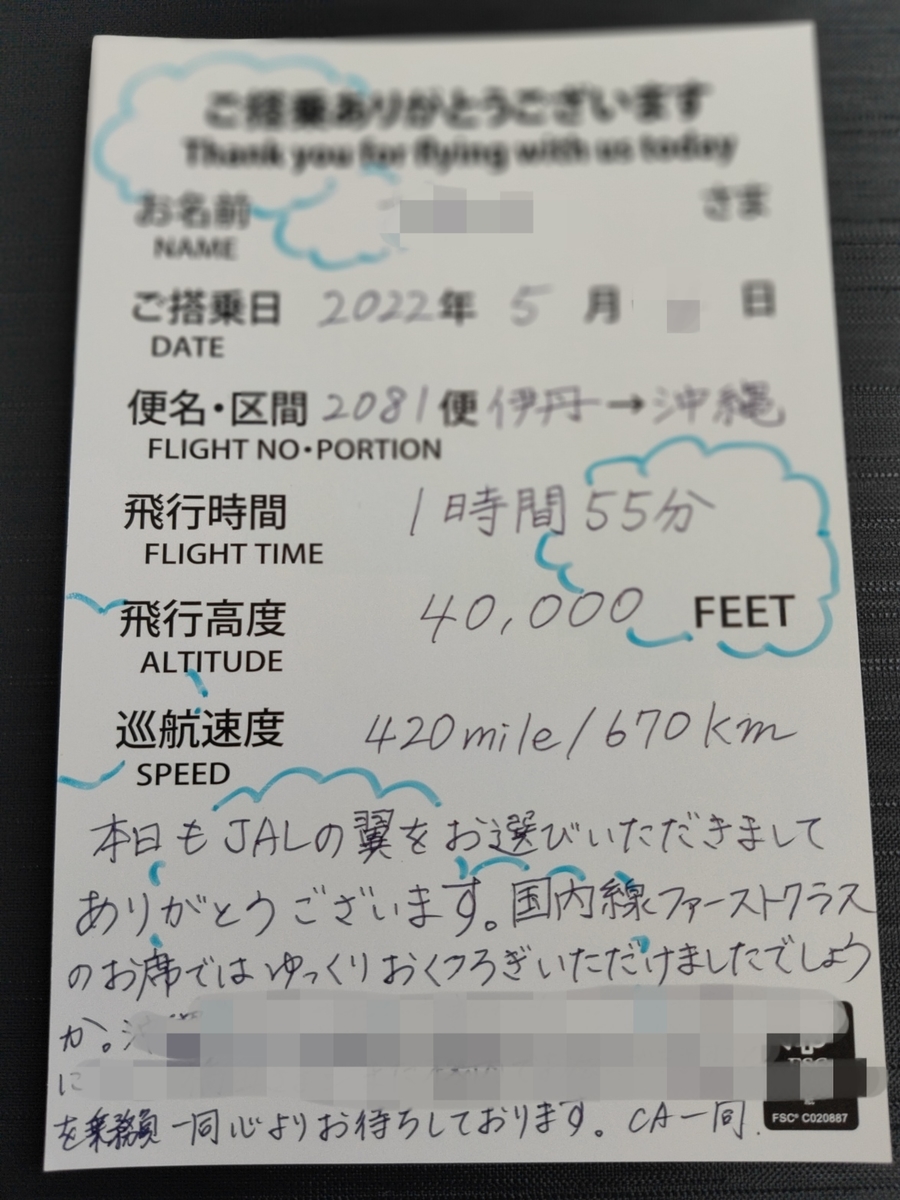 ご搭乗ありがとうございます
Thank you for flying with us today
お名前 さま
NAME
ご搭乗日 2022年 5 月 日
DATE
便名・区間 2081便 伊丹→沖縄
FLIGHT NO・PORTION
飛行時間 1時間55分
FLIGHT TIME
飛行高度 40,000 FEET
ALTITUDE
巡航速度 420mile/670km
SPEED
本日もJALの翼をお選びいただきまして
ありがとうございます。国内線ファーストクラス
のお席ではゆっくりおくつろぎいただけましたでしょう
か。
に
を乗務員一同心よりお待ちしております。CA一同.
FSC® C020887